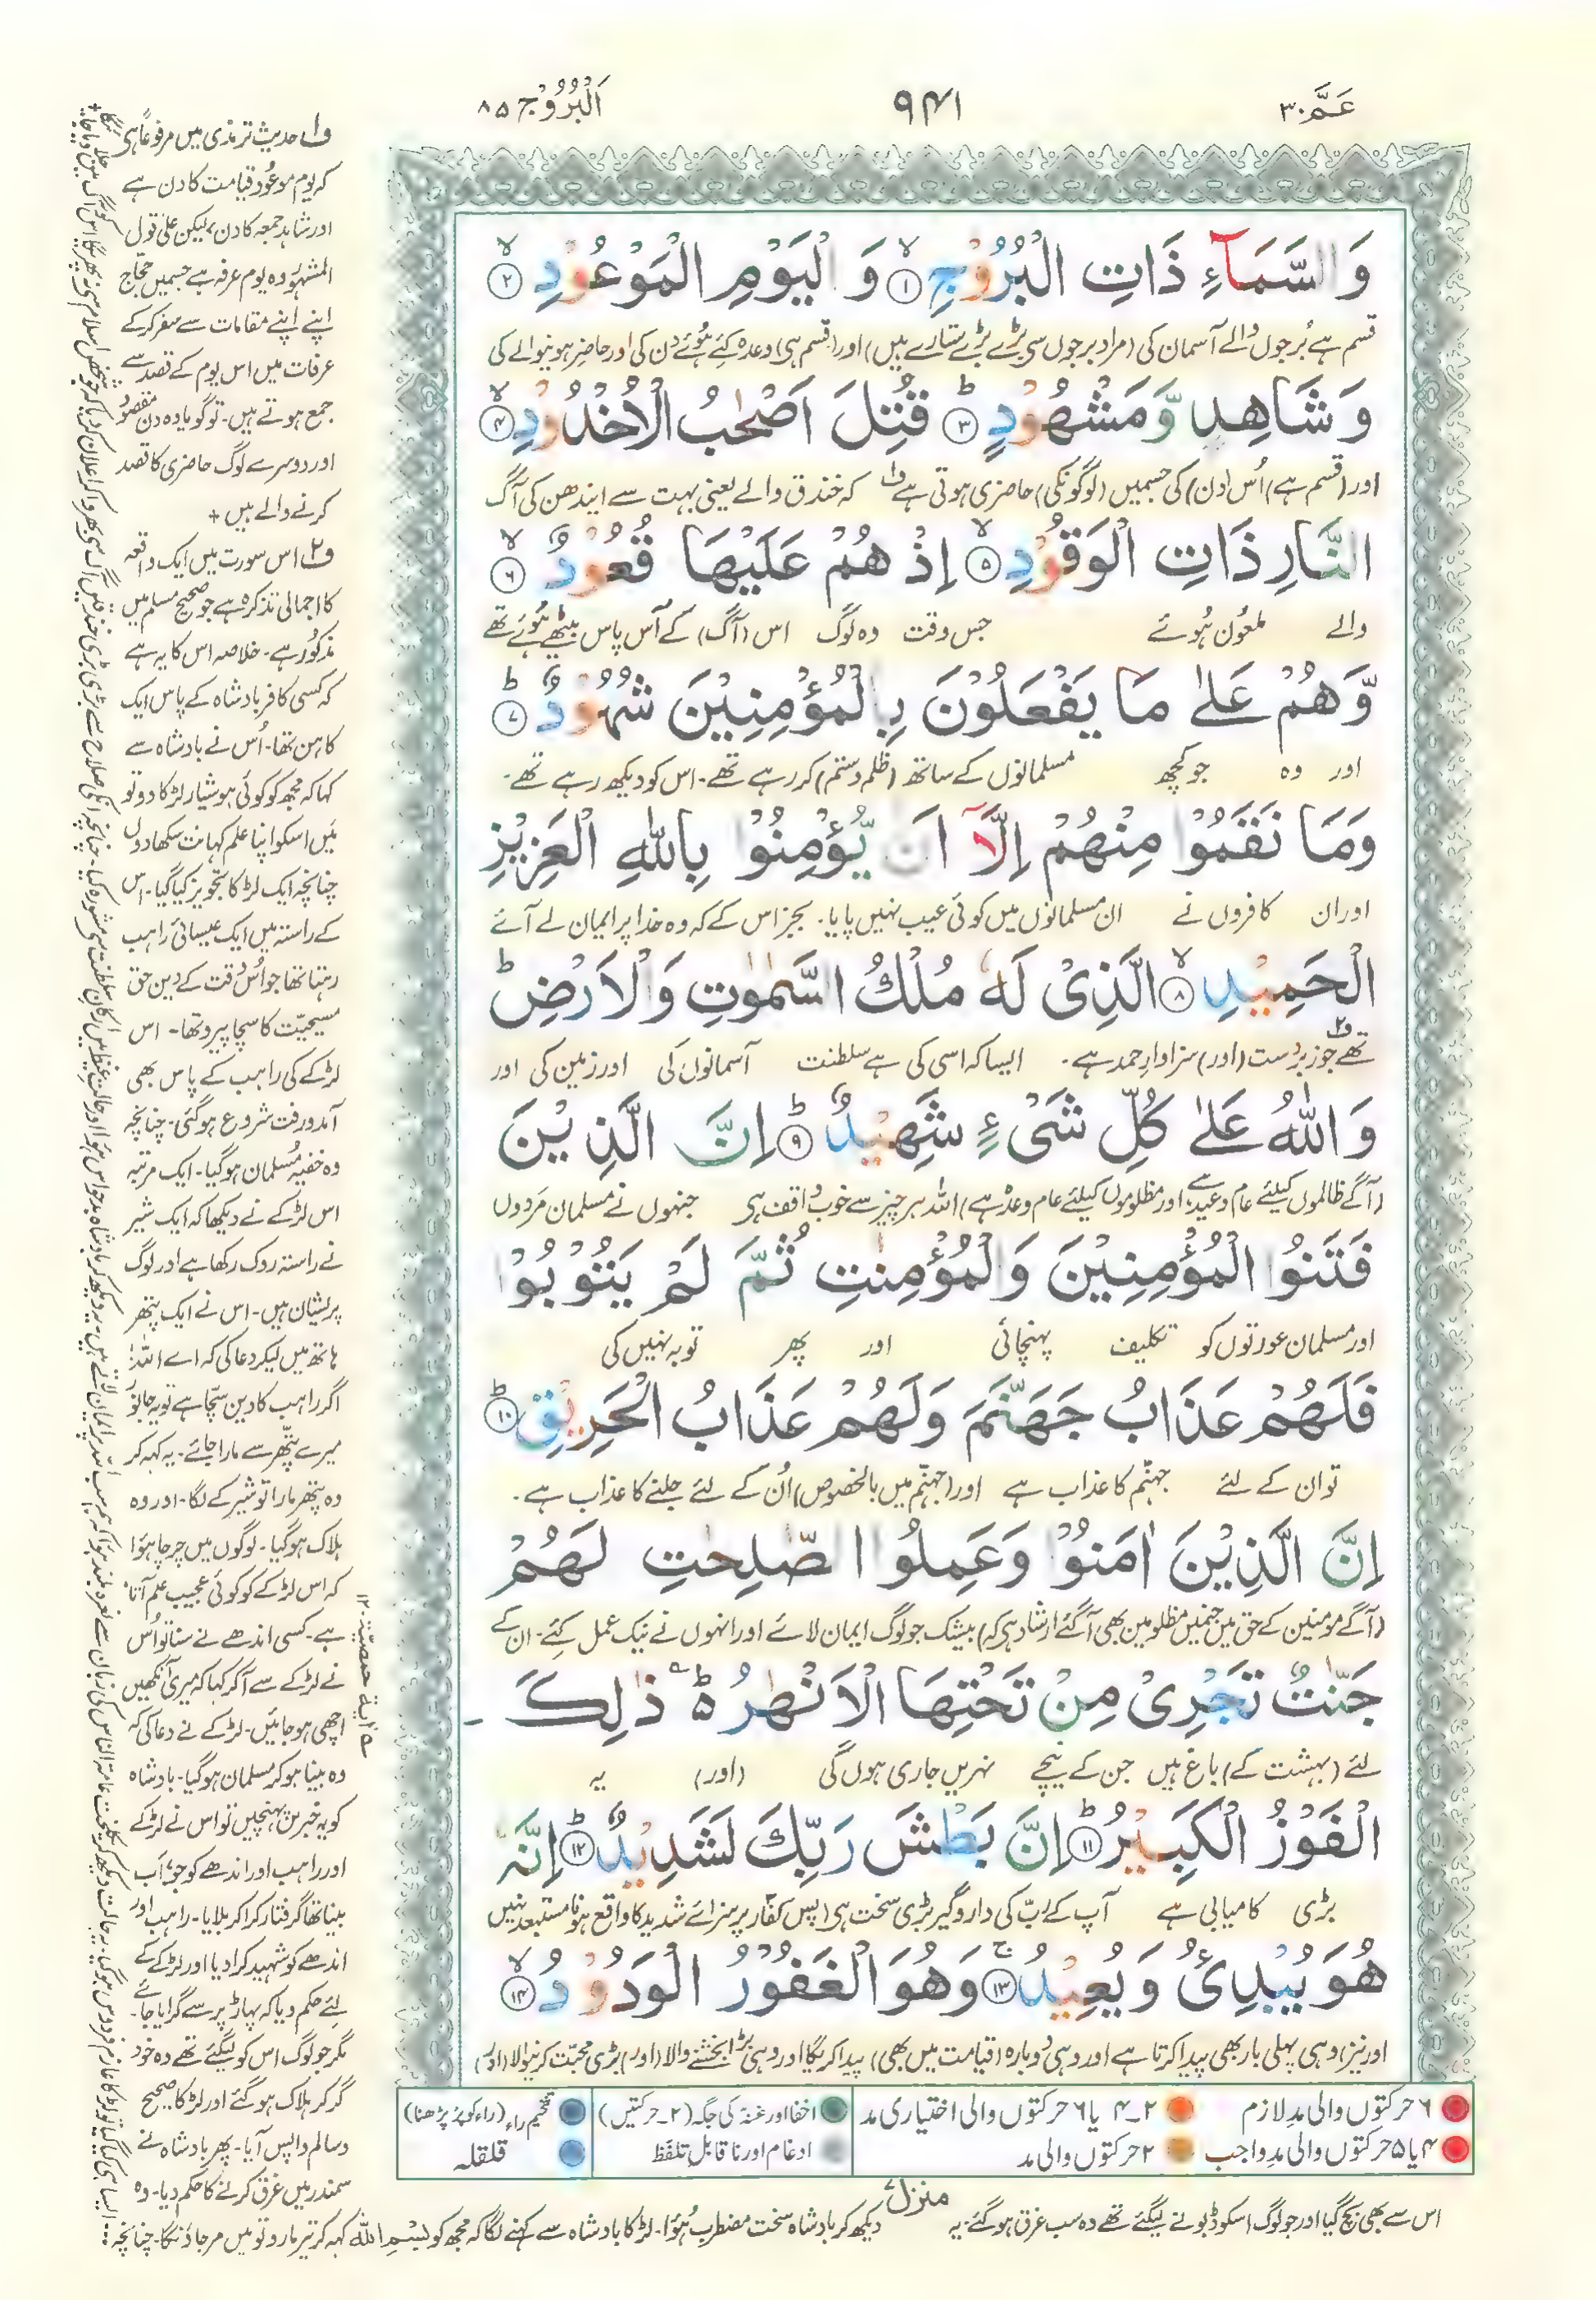 عَمَّ ۳۰
۹۴۱
اَلْبُرُوْج ۸۵
وَالسَّمَآءِ ذَاتِ الْبُرُوْجِ ۙ﴿۱﴾ وَ الْيَوْمِ الْمَوْعُوْدِ ۙ﴿۲﴾
قسم ہے بُرجوں والے آسمان کی (مراد برجوں سی بڑے بڑے ستارے ہیں) اور (قسم ہی) وعدہ کئے ہُوئے دن کی اور حاضر ہونیوالے کی
وَ شَاهِدٍ وَّ مَشْهُوْدٍ ؕ﴿۳﴾ قُتِلَ اَصْحٰبُ الْاُخْدُوْدِ ۙ﴿۴﴾
اور (قسم ہے) اُس (دن) کی جسمیں (لوگونکی) حاضری ہوتی ہے ف۱ کہ خندق والے یعنی بہت سے ایندھن کی آگ
النَّارِ ذَاتِ الْوَقُوْدِ ۙ﴿۵﴾ اِذْ هُمْ عَلَيْهَا قُعُوْدٌ ۙ﴿۶﴾
والے ملعُون ہُوئے جس وقت وہ لوگ اس (آگ) کے آس پاس بیٹھے ہُوئے تھے
وَّ هُمْ عَلٰى مَا يَفْعَلُوْنَ بِالْمُؤْمِنِيْنَ شُهُوْدٌ ؕ﴿۷﴾
اور وہ جو کچھ مسلمانوں کے ساتھ (ظلم و ستم) کر رہے تھے۔ اس کو دیکھ رہے تھے۔
وَمَا نَقَمُوْا مِنْهُمْ اِلَّاۤ اَنْ يُّؤْمِنُوْا بِاللّٰهِ الْعَزِيْزِ
اور ان کافروں نے ان مسلمانوں میں کوئی عیب نہیں پایا۔ بجز اس کے کہ وہ خدا پر ایمان لے آئے
الْحَمِيْدِ ۙ﴿۸﴾ الَّذِىْ لَهٗ مُلْكُ السَّمٰوٰتِ وَالْاَرْضِ ؕ
تھے جو زبردست (اور) سزاوارِ حمد ہے۔ ف۲ ایسا کہ اسی کی ہے سلطنت آسمانوں کی اور زمین کی اور
وَاللّٰهُ عَلٰى كُلِّ شَىْءٍ شَهِيْدٌ ؕ﴿۹﴾ اِنَّ الَّذِيْنَ
(آگے ظالموں کیلئے عام وعید ہے اور مظلوموں کیلئے عام وعدہ ہے) اللہ ہر چیز سے خوب واقف ہی جنہوں نے مسلمان مَردوں
فَتَنُوا الْمُؤْمِنِيْنَ وَالْمُؤْمِنٰتِ ثُمَّ لَمْ يَتُوْبُوْا
اور مسلمان عورتوں کو تکلیف پہنچائی اور پھر توبہ نہیں کی
فَلَهُمْ عَذَابُ جَهَنَّمَ وَلَهُمْ عَذَابُ الْحَرِيْقِ ؕ﴿۱۰﴾
تو ان کے لئے جہنّم کا عذاب ہے اور (جہنّم میں بالخصوص) اُن کے لئے جلنے کا عذاب ہے۔
اِنَّ الَّذِيْنَ اٰمَنُوْا وَعَمِلُوا الصّٰلِحٰتِ لَهُمْ
(آگے مومنین کے حق میں جنمیں مظلومین بھی آگئے ارشاد ہی کہ) بیشک جو لوگ ایمان لائے اور انہوں نے نیک عمل کئے۔ ان کے
جَنّٰتٌ تَجْرِىْ مِنْ تَحْتِهَا الْاَنْهٰرُ ؕ ذٰلِكَ
لئے (بہشت کے) باغ ہیں جن کے نیچے نہریں جاری ہوں گی (اور) یہ
الْفَوْزُ الْكَبِيْرُ ؕ﴿۱۱﴾ اِنَّ بَطْشَ رَبِّكَ لَشَدِيْدٌ ؕ﴿۱۲﴾ اِنَّهٗ
بڑی کامیابی ہے آپ کے ربّ کی داروگیر بڑی سخت ہی (پس کفّار پر سزائے شدید کا واقع ہونا مستبعد نہیں
هُوَ يُبْدِئُ وَ يُعِيْدُ ۚ﴿۱۳﴾ وَهُوَ الْغَفُوْرُ الْوَدُوْدُ ۙ﴿۱۴﴾
اور نیز) وہی پہلی بار بھی پیدا کرتا ہے اور وہی دوبارہ (قیامت میں بھی) پیدا کریگا اور وہی بڑا بخشنے والا (اور) بڑی محبّت کرنیوالا (اور)
۶ حرکتوں والی مدِ لازم
۲۔۴ یا ۶ حرکتوں والی اختیاری مد
اخفا اور غنّہ کی جگہ (۲۔حرکتیں)
تفخیم راء (راء کو پُر پڑھنا)
۴ یا ۵ حرکتوں والی مدِ واجب
۲ حرکتوں والی مد
ادغام اور ناقابلِ تلفّظ
قلقلہ
منزل ۷
ف۱ حدیث ترمذی میں مرفوعًا ہی
کہ یوم موعُود قیامت کا دن ہے
اور شاہد جمعہ کا دن، لیکن علیٰ قول
المشہُور وہ یوم عرفہ ہے جسمیں حجّاج
اپنے اپنے مقامات سے سفر کر کے
عرفات میں اس یوم کے قصد سے
جمع ہوتے ہیں۔ تو گویا وہ دن مقصُود
اور دوسرے لوگ حاضری کا قصد
کرنے والے ہیں +
ف۲ اس سورت میں ایک واقعہ
کا اجمالی تذکرہ ہے جو صحیح مسلم میں
مذکُور ہے۔ خلاصہ اس کا یہ ہے
کہ کسی کافر بادشاہ کے پاس ایک
کاہن تھا۔ اُس نے بادشاہ سے
کہا کہ مجھ کو کوئی ہوشیار لڑکا دو تو
مَیں اسکو اپنا علم کہانت سکھا دوں
چنانچہ ایک لڑکا تجویز کیا گیا۔ اس
کے راستہ میں ایک عیسائی راہب
رہتا تھا جو اُس وقت کے دین حق
مسیحیّت کا سچا پیرو تھا۔ اس
لڑکے کی راہب کے پاس بھی
آمدورفت شروع ہو گئی۔ چنانچہ
وہ خفیہ مُسلمان ہو گیا۔ ایک مرتبہ
اس لڑکے نے دیکھا کہ ایک شیر
نے راستہ روک رکھا ہے اور لوگ
پریشان ہیں۔ اس نے ایک پتھر
ہاتھ میں لیکر دعا کی کہ اے اللہ!
اگر راہب کا دین سچّا ہے تو یہ جانور
میرے پتّھر سے مارا جائے۔ یہ کہہ کر
وہ پتھر مارا تو شیر کے لگا۔ اور وہ
ہلاک ہو گیا۔ لوگوں میں چرچا ہؤا
کہ اس لڑکے کو کوئی عجیب علم آتا
ہے۔ کسی اندھے نے سنا تو اُس
نے لڑکے سے آکر کہا کہ میری آنکھیں
اچھی ہو جائیں۔ لڑکے نے دعا کی کہ
وہ بینا ہو کر مسلمان ہو گیا۔ بادشاہ
کو یہ خبریں پہنچیں تو اس نے لڑکے
اور راہب اور اندھے کو جو اَب
بینا تھا گرفتار کرا کر بلایا۔ راہب اور
اندھے کو شہید کرا دیا اور لڑکے کے
لئے حکم دیا کہ پہاڑ پر سے گرایا جائے۔
مگر جو لوگ اس کو لیگئے تھے وہ خود
گر کر ہلاک ہو گئے اور لڑکا صحیح
و سالم واپس آیا۔ پھر بادشاہ نے
سمندر میں غرق کرنے کا حکم دیا۔ وہ
اس سے بھی بچ گیا اور جو لوگ اسکو ڈبونے لیگئے تھے وہ سب غرق ہو گئے۔ یہ دیکھ کر بادشاہ سخت مضطرب ہُوا۔ لڑکا بادشاہ سے کہنے لگا کہ مجھ کو بِسْمِ اللہ کہہ کر تیر مارو تو میں مر جاؤنگا۔ چنانچہ